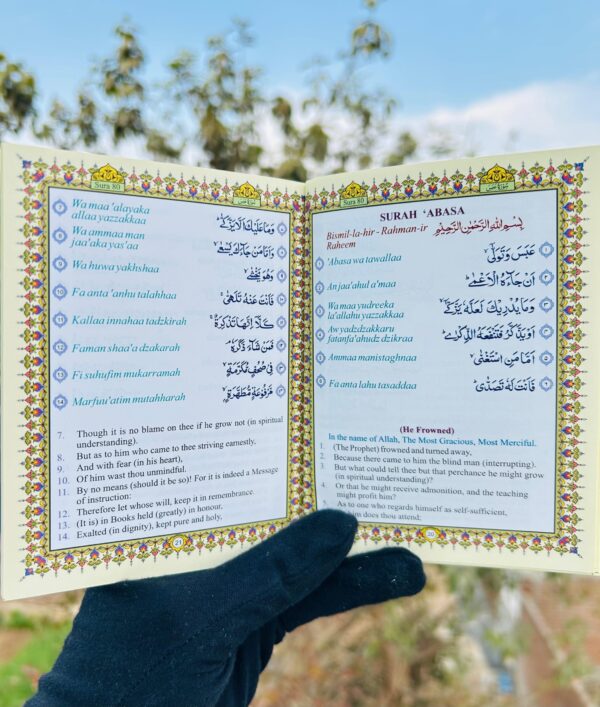 Sura 80
SURAH ‘ABASA
Bismil-la-hir - Rahman-ir Raheem بِسْمِ اللّٰهِ الرَّحْمٰنِ الرَّحِيْمِ
1 ‘Abasa wa tawallaa عَبَسَ وَتَوَلّٰىۙ
2 An jaa’ahul a’maa اَنْ جَآءَهُ الْاَعْمٰىۗ
3 Wa maa yudreeka
la’allahu yazzakkaa وَمَا يُدْرِيْكَ لَعَلَّهٗ يَزَّكّٰىۙ
4 Aw yadzdzakkaru
fatanfa’ahudz dzikraa اَوْ يَذَّكَّرُ فَتَنْفَعَهُ الذِّكْرٰىۗ
5 Ammaa manistaghnaa اَمَّا مَنِ اسْتَغْنٰىۙ
6 Fa anta lahu tasaddaa فَاَنْتَ لَهٗ تَصَدّٰىۗ
(He Frowned)
In the name of Allah, The Most Gracious, Most Merciful.
1. (The Prophet) frowned and turned away,
2. Because there came to him the blind man (interrupting).
3. But what could tell thee but that perchance he might grow
(in spiritual understanding)?
4. Or that he might receive admonition, and the teaching
might profit him?
As to one who regards himself as self-sufficient,
him does thou attend;
20
Sura 80
7 Wa maa ‘alayaka
allaa yazzakkaa وَمَا عَلَيْكَ اَلَّا يَزَّكّٰىۗ
8 Wa ammaa man
jaa’aka yas’aa وَاَمَّا مَنْ جَآءَكَ يَسْعٰىۙ
9 Wa huwa yakhshaa وَهُوَ يَخْشٰىۙ
10 Fa anta ‘anhu talahhaa فَاَنْتَ عَنْهُ تَلَهّٰىۚ
11 Kallaa innahaa tadzkirah كَلَّآ اِنَّهَا تَذْكِرَةٌۚ
12 Faman shaa’a dzakarah فَمَنْ شَآءَ ذَكَرَهٗۘ
13 Fi suhufim mukarramah فِيْ صُحُفٍ مُّكَرَّمَةٍۙ
14 Marfuu’atim mutahharah مَّرْفُوْعَةٍ مُّطَهَّرَةٍۙ
7. Though it is no blame on thee if he grow not (in spiritual
understanding).
8. But as to him who came to thee striving earnestly,
9. And with fear (in his heart),
10. Of him wast thou unmindful.
11. By no means (should it be so)! For it is indeed a Message
of instruction:
12. Therefore let whose will, keep it in remembrance.
13. (It is) in Books held (greatly) in honour,
14. Exalted (in dignity), kept pure and holy,
21